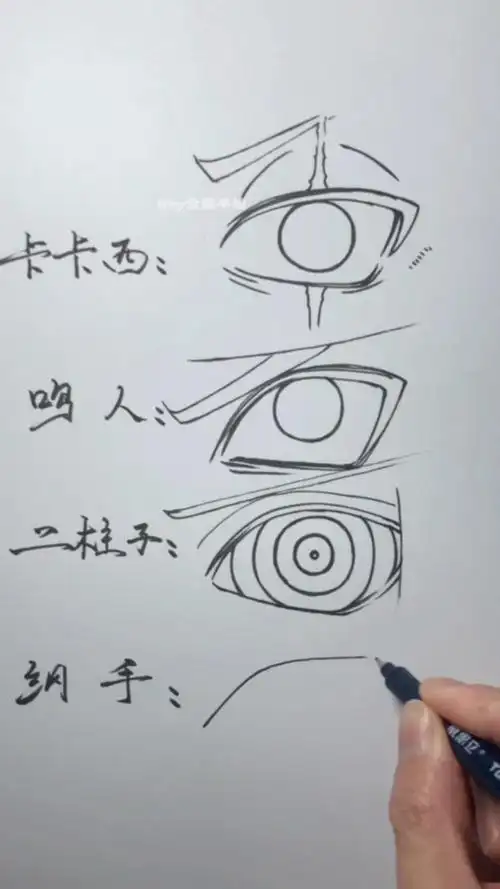 卡卡西：
鸣人：
二柱子：
纲手：